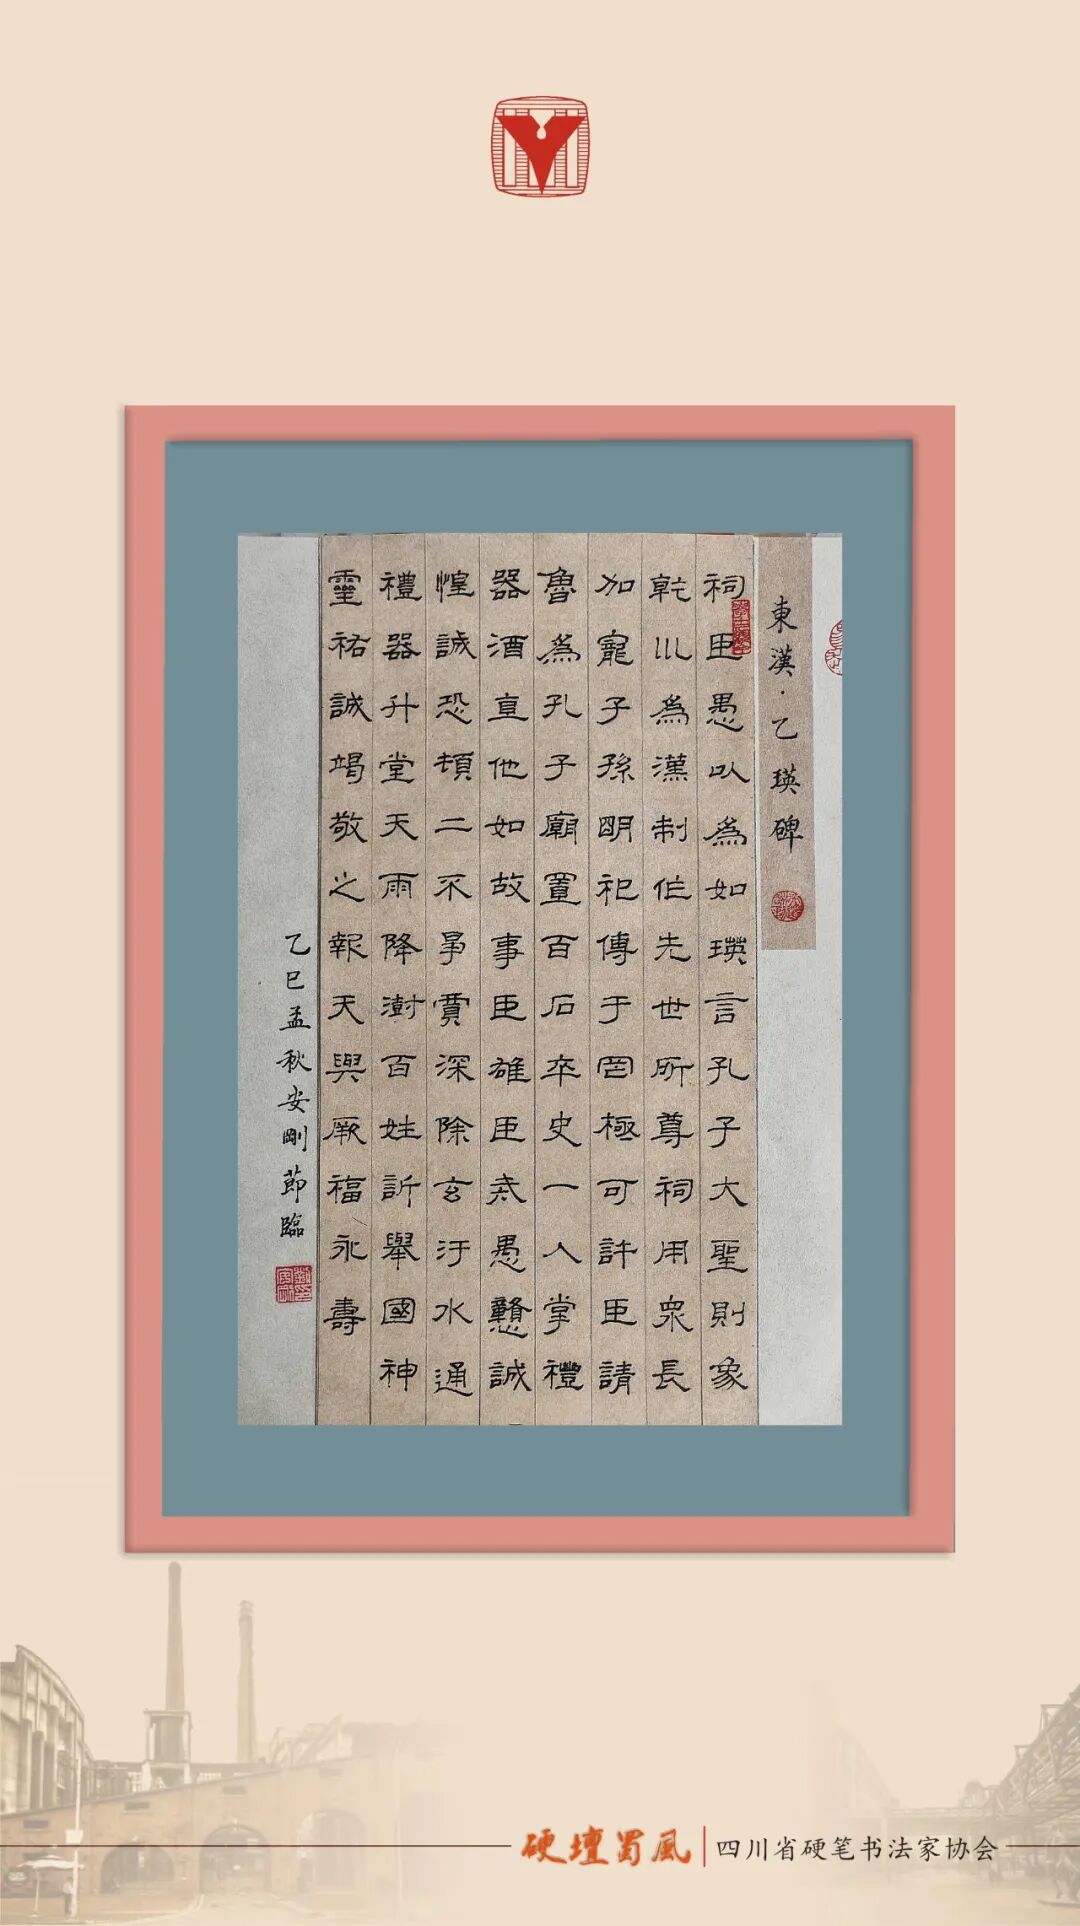 東漢·乙瑛碑
祠臣愚以爲如瑛言孔子大聖則象
乾川爲漢制作先世所尊祠用衆長
加寵子孫明祀傳于罔極可許臣請
魯爲孔子廟置百石卒史一人掌禮
器酒直他如故事臣雄臣戒愚戇誠
惶誠恐頓二不
深除玄汙水通
禮器升堂天雨降澍百姓訢舉國神
靈祐誠竭敬之報天與厥福永壽
乙巳孟秋安剛節臨
硬壇蜀風
四川省硬笔书法家协会